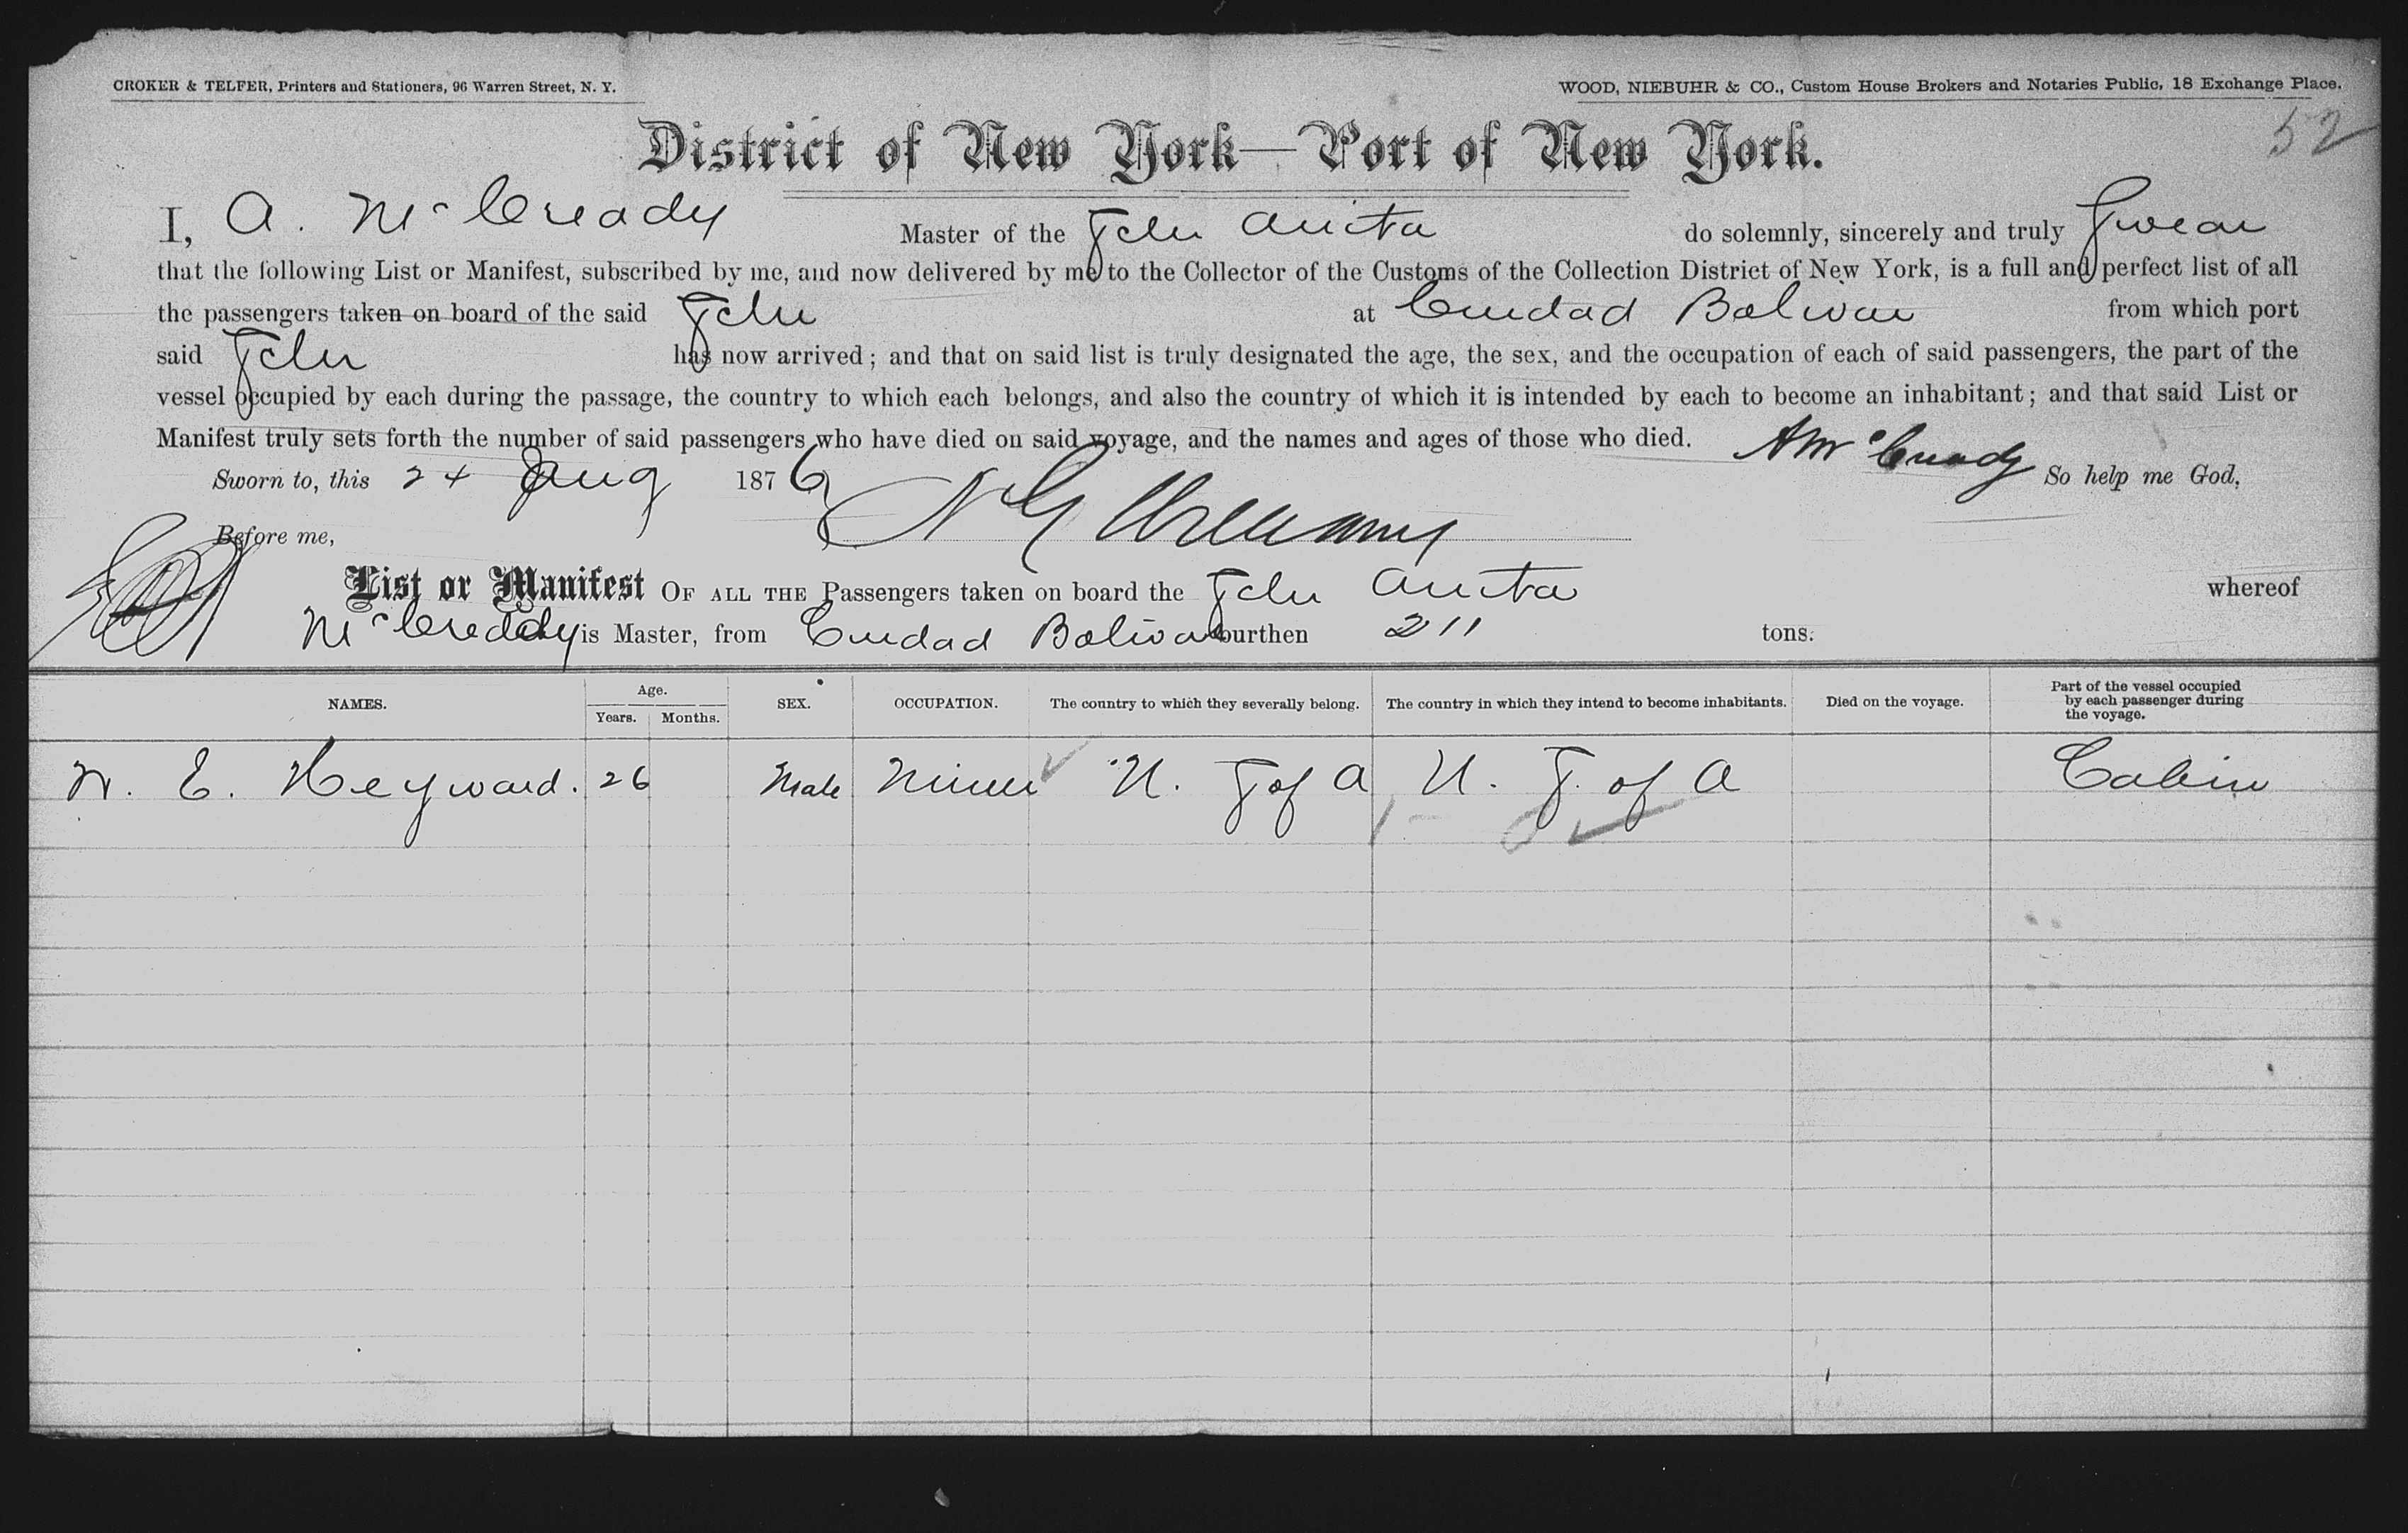 CROKER & TELFER, Printers and Stationers, 96 Warren Street, N. Y.
WOOD, NIEBUHR & CO., Custom House Brokers and Notaries Public, 18 Exchange Place.
52
District of New York—Port of New York.
I, A. McCready Master of the Schr Anita do solemnly, sincerely and truly Swear
that the following List or Manifest, subscribed by me, and now delivered by me to the Collector of the Customs of the Collection District of New York, is a full and perfect list of all
the passengers taken on board of the said Schr at Ciudad Bolivar from which port
said Schr has now arrived; and that on said list is truly designated the age, the sex, and the occupation of each of said passengers, the part of the
vessel occupied by each during the passage, the country to which each belongs, and also the country of which it is intended by each to become an inhabitant; and that said List or
Manifest truly sets forth the number of said passengers who have died on said voyage, and the names and ages of those who died.
A McCready So help me God.
Sworn to, this 24 Aug 1876
Before me,
List or Manifest OF ALL THE Passengers taken on board the Schr Anita whereof
McCready is Master, from Ciudad Bolivar burthen 211 tons.
NAMES. Age. Years. Months. SEX. OCCUPATION. The country to which they severally belong. The country in which they intend to become inhabitants. Died on the voyage. Part of the vessel occupied by each passenger during the voyage.
W. E. Heyward. 26 Male Miner U. S of A U. S. of A Cabin